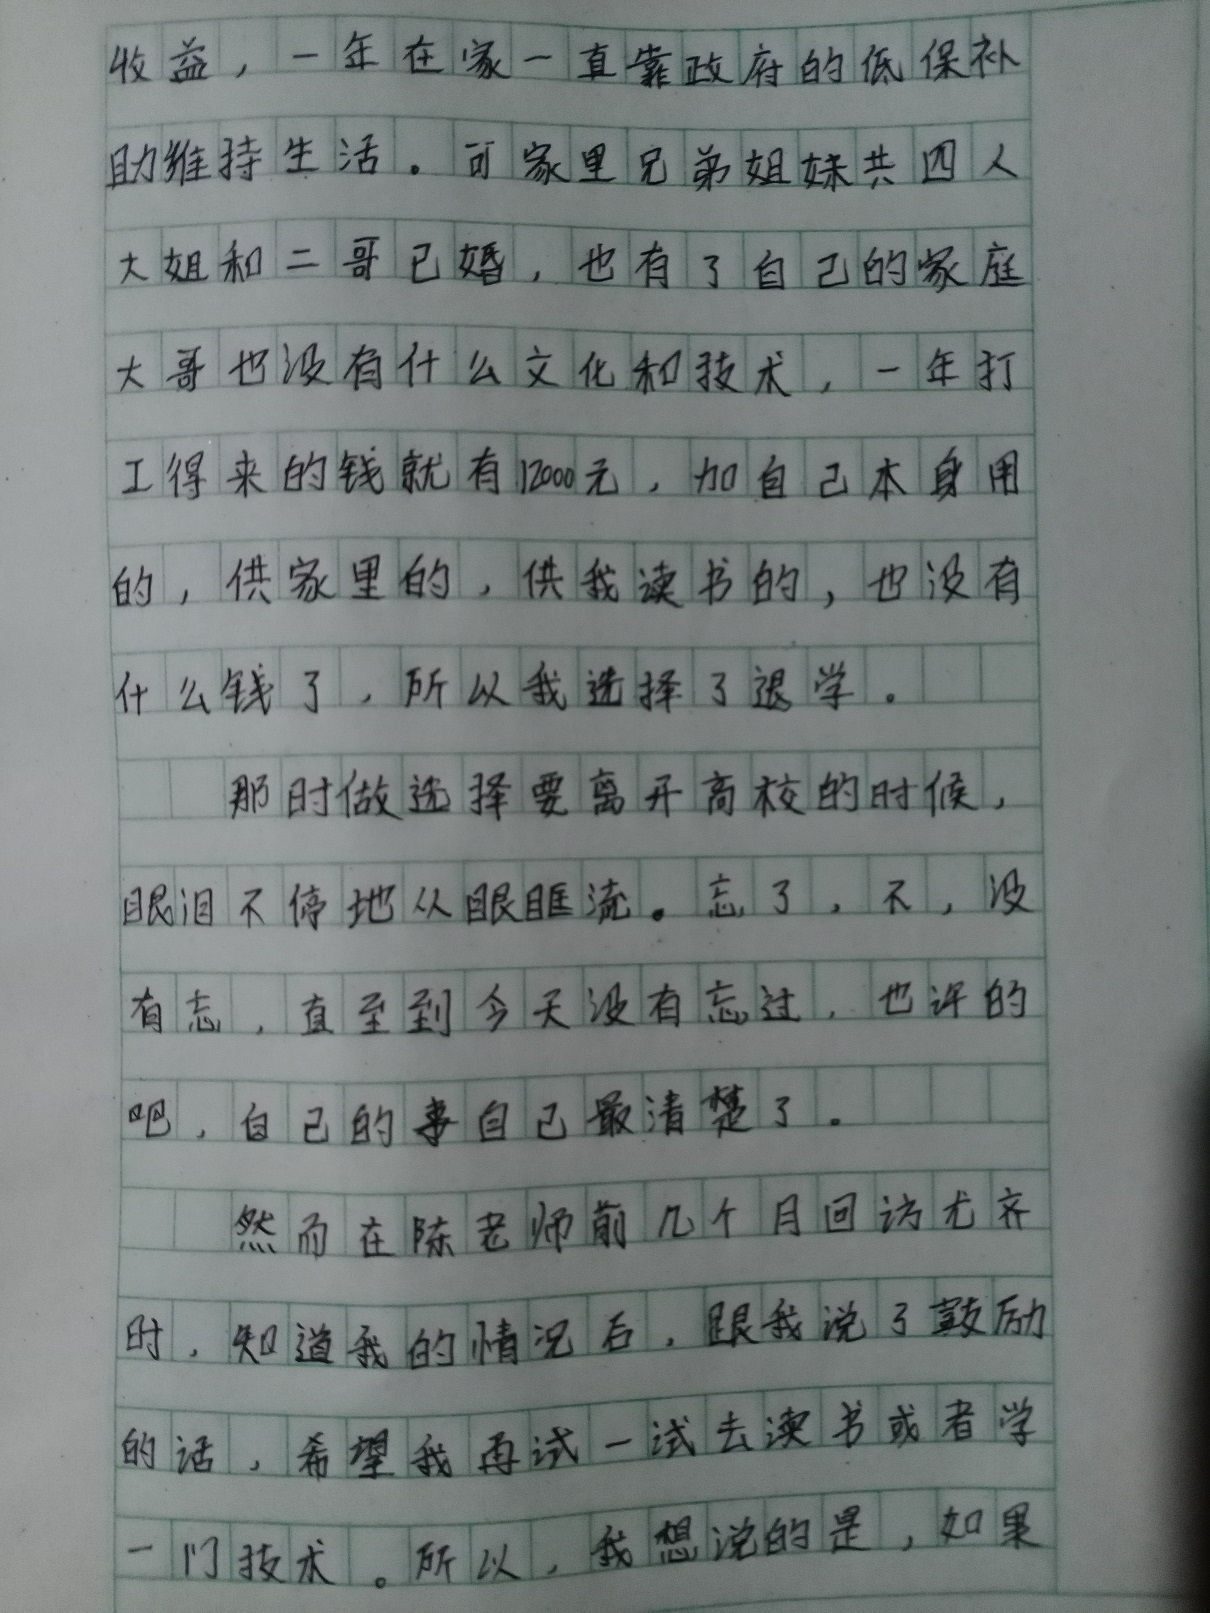 收益，一年在家一直靠政府的低保补
助维持生活。可家里兄弟姐妹共四人
大姐和二哥已婚，也有了自己的家庭
大哥也没有什么文化和技术，一年打
工得来的钱就有12000元，加自己本身用
的，供家里的，供我读书的，也没有
什么钱了，所以我选择了退学。
那时做选择要离开高校的时候，
眼泪不停地从眼眶流。忘了，不，没
有忘，直至到今天没有忘过，也许的
吧，自己的事自己最清楚了。
然而在陈老师前几个月回访尤齐
时，知道我的情况后，跟我说了鼓励
的话，希望我再试一试去读书或者学
一门技术。所以，我想说的是，如果